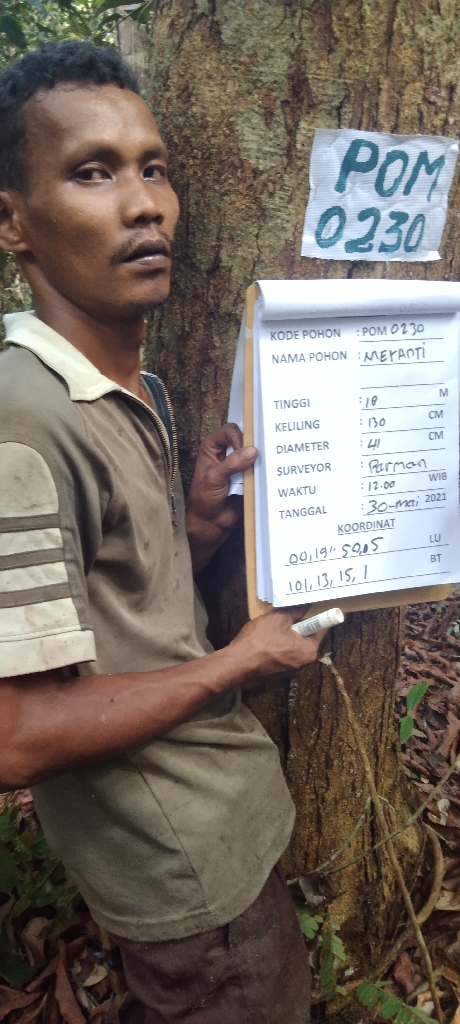 POM
0230
KODE POHON : POM 0230
NAMA POHON : MERANTI
TINGGI : 18 M
KELILING : 130 CM
DIAMETER : 41 CM
SURVEYOR : Parman
WAKTU : 12.00 WIB
TANGGAL : 30-mai 2021
KOORDINAT
00,19" 50,5 LU
101, 13, 15, 1 BT